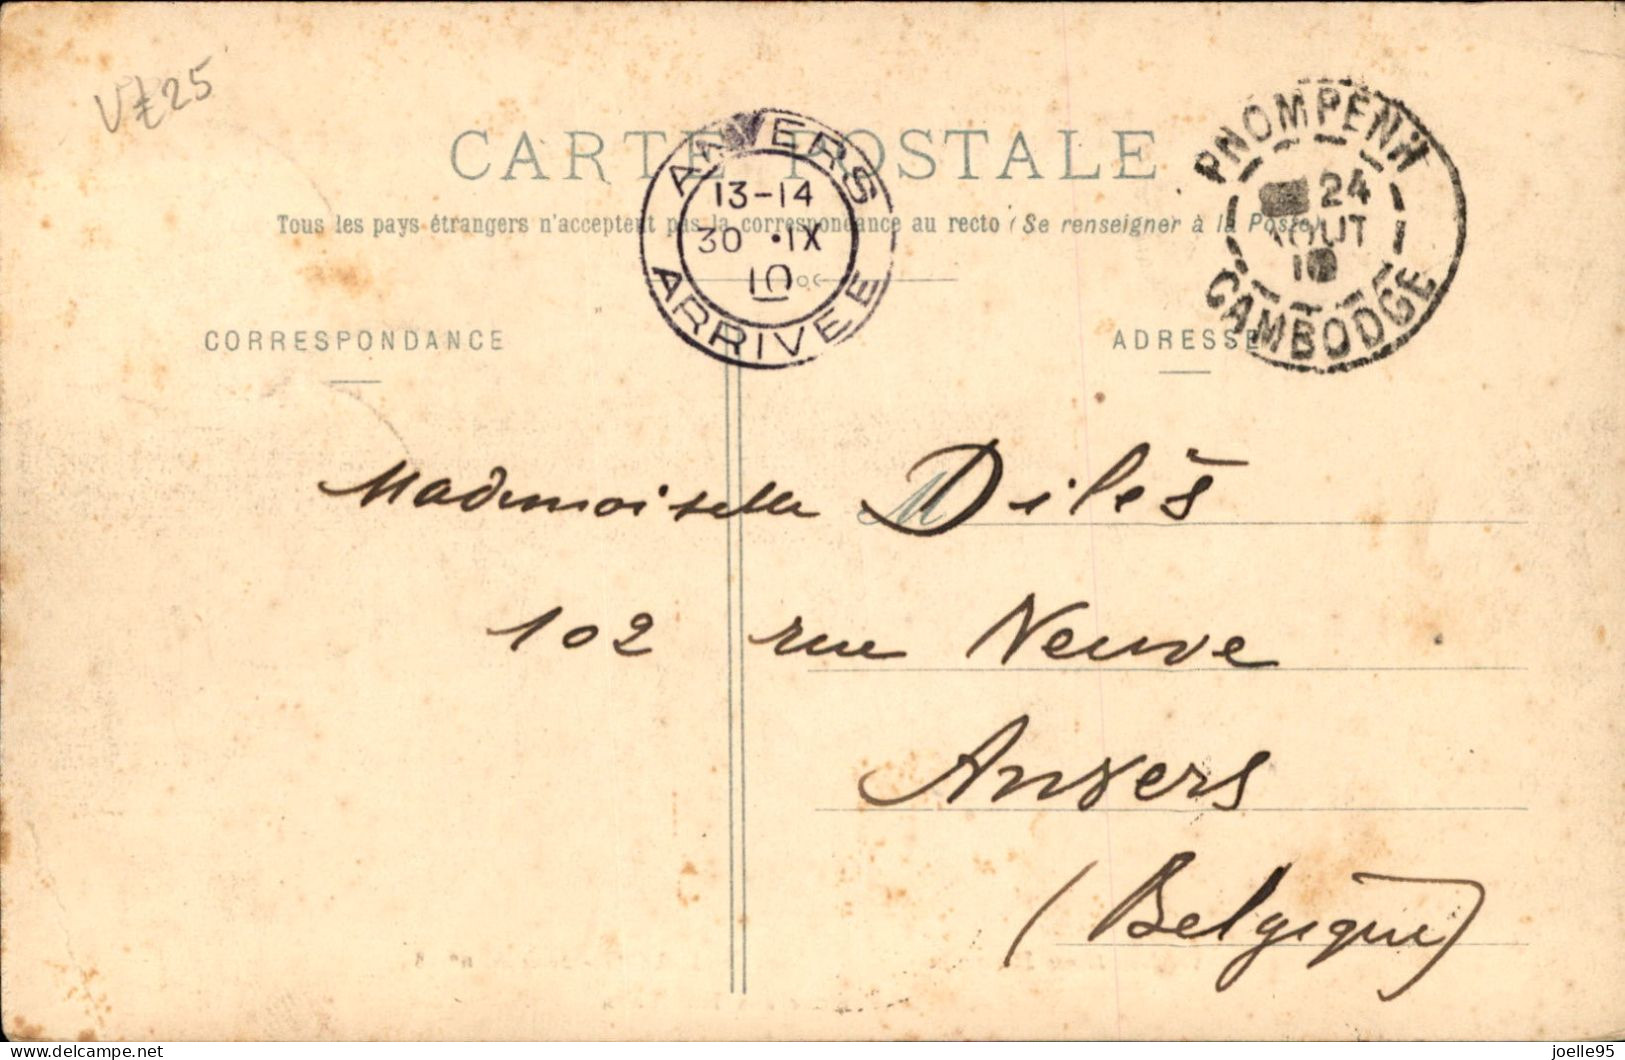 V£25
CARTE POSTALE
Tous les pays étrangers n'acceptent pas la correspondance au recto (Se renseigner à la Poste)
ANVERS
13-14
30 •IX
10
ARRIVEE
PNOMPENH
24
AOUT
10
CAMBODGE
CORRESPONDANCE
ADRESSE
Mademoiselle M Dilès
102 rue Neuve
Anvers
(Belgique)
delcampe.net
joelle95